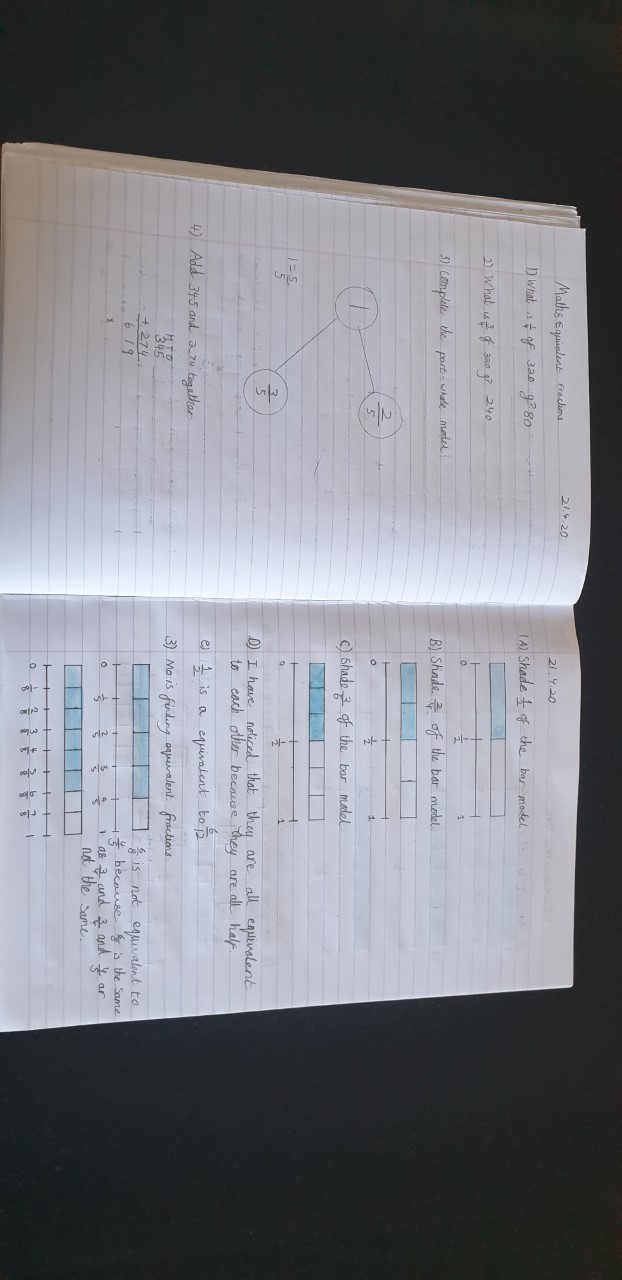 Maths Equivalent fractions
21.4.20
1) What is 1/4 of 320 g? 80
2) What is 3/4 of 320 g? 240
3) Complete the part-whole model
1
2/5
3/5
1 = 5/5
4) Add 345 and 274 together
H T O
345
+ 274
6 1 9
21.4.20
1A) Shade 1/2 of the bar model
0 1/2 1
B) Shade 2/4 of the bar model
0 1/2 1
C) Shade 3/6 of the bar model
0 1/2 1
D) I have noticed that they are all equivalent
to each other because they are all half.
e) 1/2 is a equivalent to 6/12
3) Mo is finding equivalent fractions
0 1/5 2/5 3/5 4/5 1
6/8 is not equivalent to
4/5 because 6/8 is the same
as 3/4 and 3/4 and 4/5 ar
not the same.
0 1/8 2/8 3/8 4/8 5/8 6/8 7/8 1